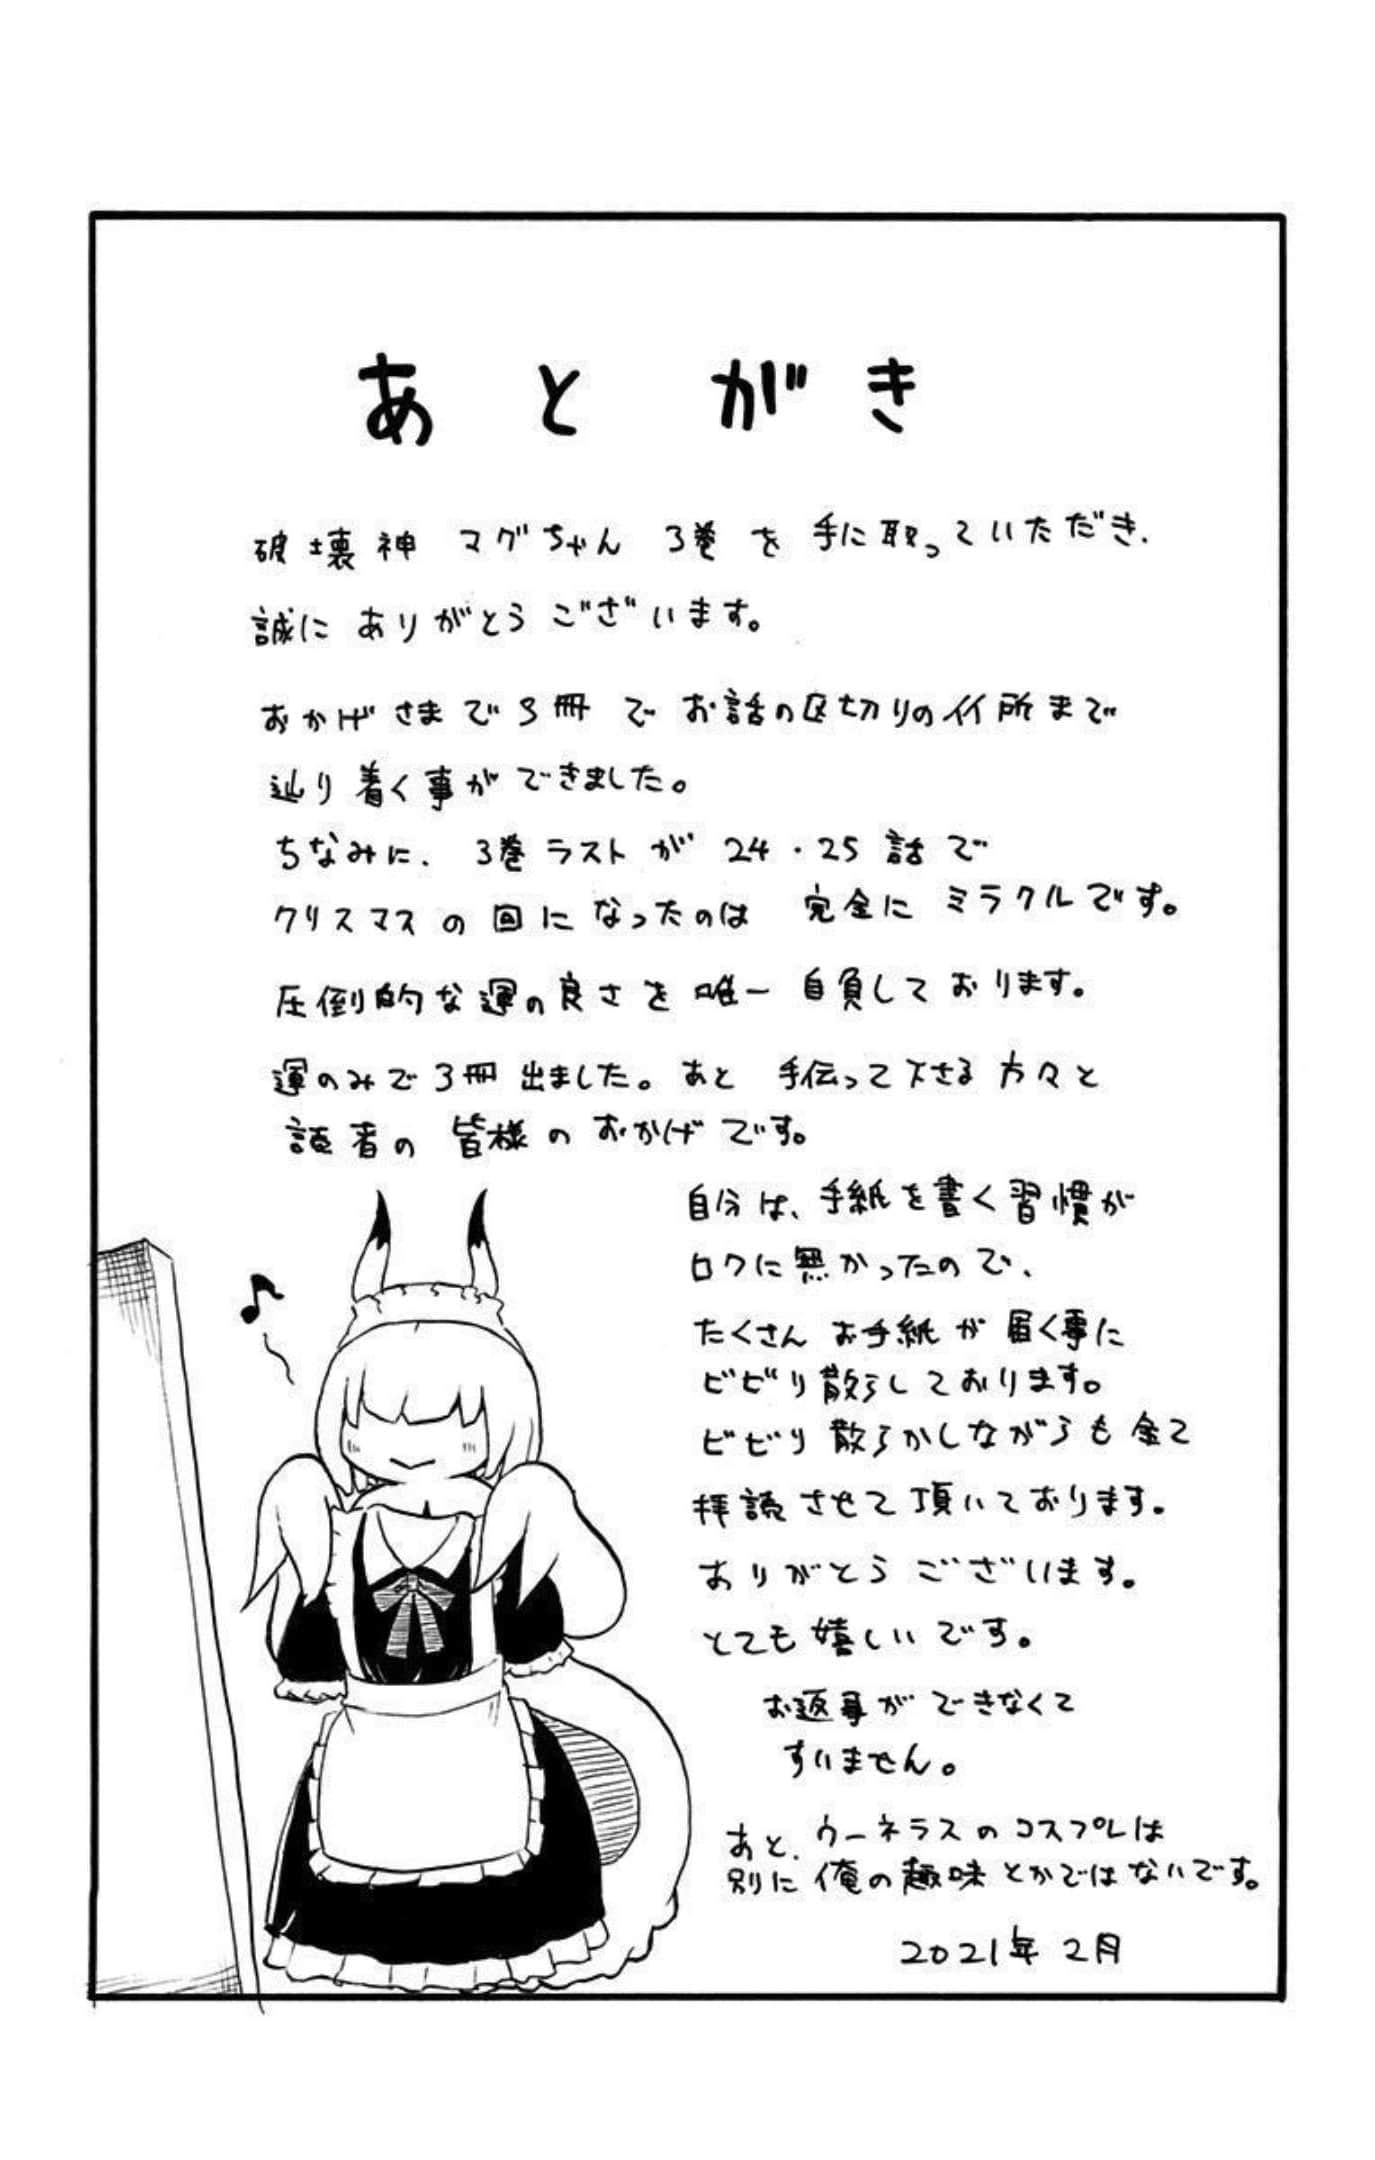 あとがき
破壊神 マグちゃん 3巻 を 手に取っていただき、
誠に ありがとう ございます。
おかげさまで 3冊 で お話の区切りのイイ所まで
辿り着く事ができました。
ちなみに、 3巻ラスト が 24・25 話で
クリスマスの回になったのは 完全に ミラクルです。
圧倒的な運の良さを唯一 自負しております。
運のみで 3冊出ました。あと 手伝って下さる方々と
読者の 皆様の おかげです。
自分は、手紙を書く習慣が
ロクに無かったので、
たくさん お手紙が 届く事に
ビビり散らしております。
ビビり 散らかしながらも 全て
拝読させて頂いております。
ありがとう ございます。
とても 嬉しいです。
お返事が できなくて
すいません。
あと、ウーネラスのコスプレは
別に 俺の趣味 とかではないです。
2021年 2月